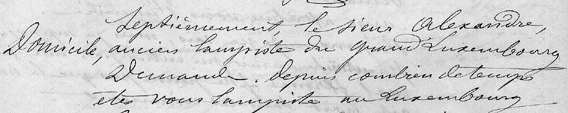 Septièmement, le sieur Alexandre,
Domicile, ancien lampiste du grand Luxembourg
Demande. depuis combien de temps
etes vous lampiste au Luxembourg